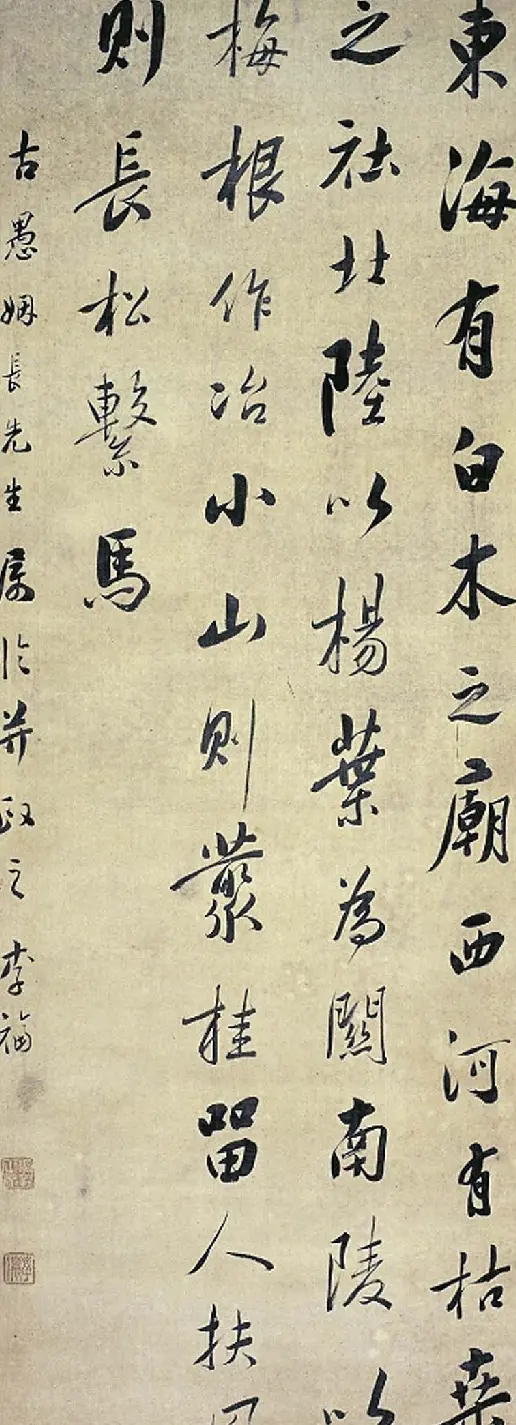 東海有白木之廟西河有枯桑
之社北陸以楊葉為關南陵以
梅根作冶小山則叢桂留人扶
則長松繫馬
古愚姻長先生属臨并政之李福